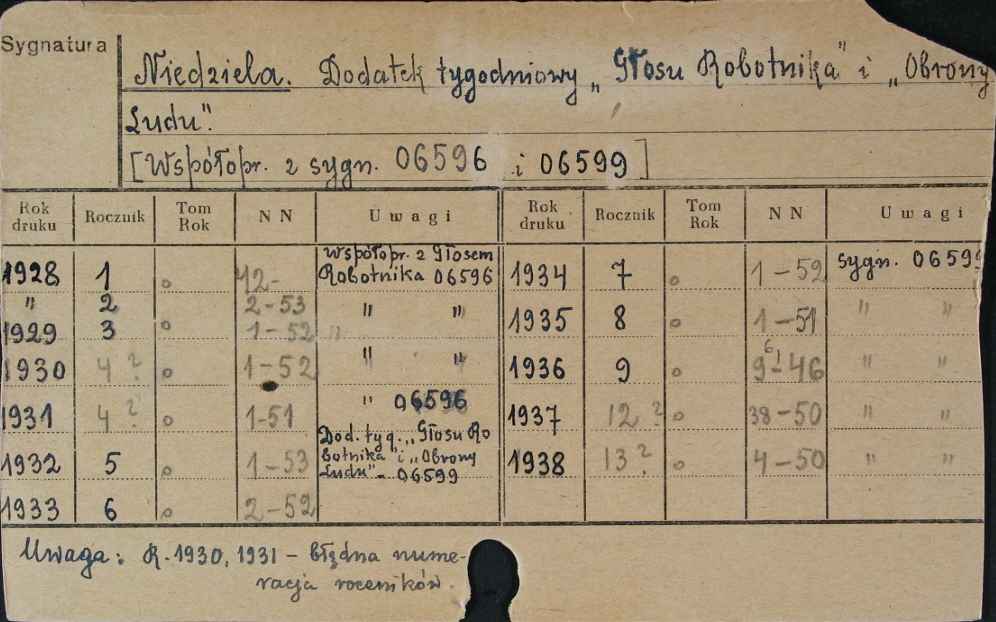 Sygnatura
Niedziela. Dodatek tygodniowy „Głosu Robotnika" i „Obrony
Ludu".
[Współopr. z sygn. 06596 i 06599]
Rok druku Rocznik Tom Rok NN Uwagi Rok druku Rocznik Tom Rok NN Uwagi
1928 1 o 42- Współopr. z Głosem Robotnika 06596 1934 7 o 1-52 sygn. 06599
" 2 2-53 " " 1935 8 o 1-51 " "
1929 3 o 1-52 "
1930 4? o 1-52 " " 1936 9 o 9-46 " "
1931 4? o 1-51 " 06596 1937 12? o 38-50 " "
1932 5 o 1-53 Dod. tyg. „Głosu Robotnika" i „Obrony Ludu" - 06599 1938 13? o 4-50 " "
1933 6 o 2-52
Uwaga: R. 1930, 1931 - błędna nume-
racja roczników.